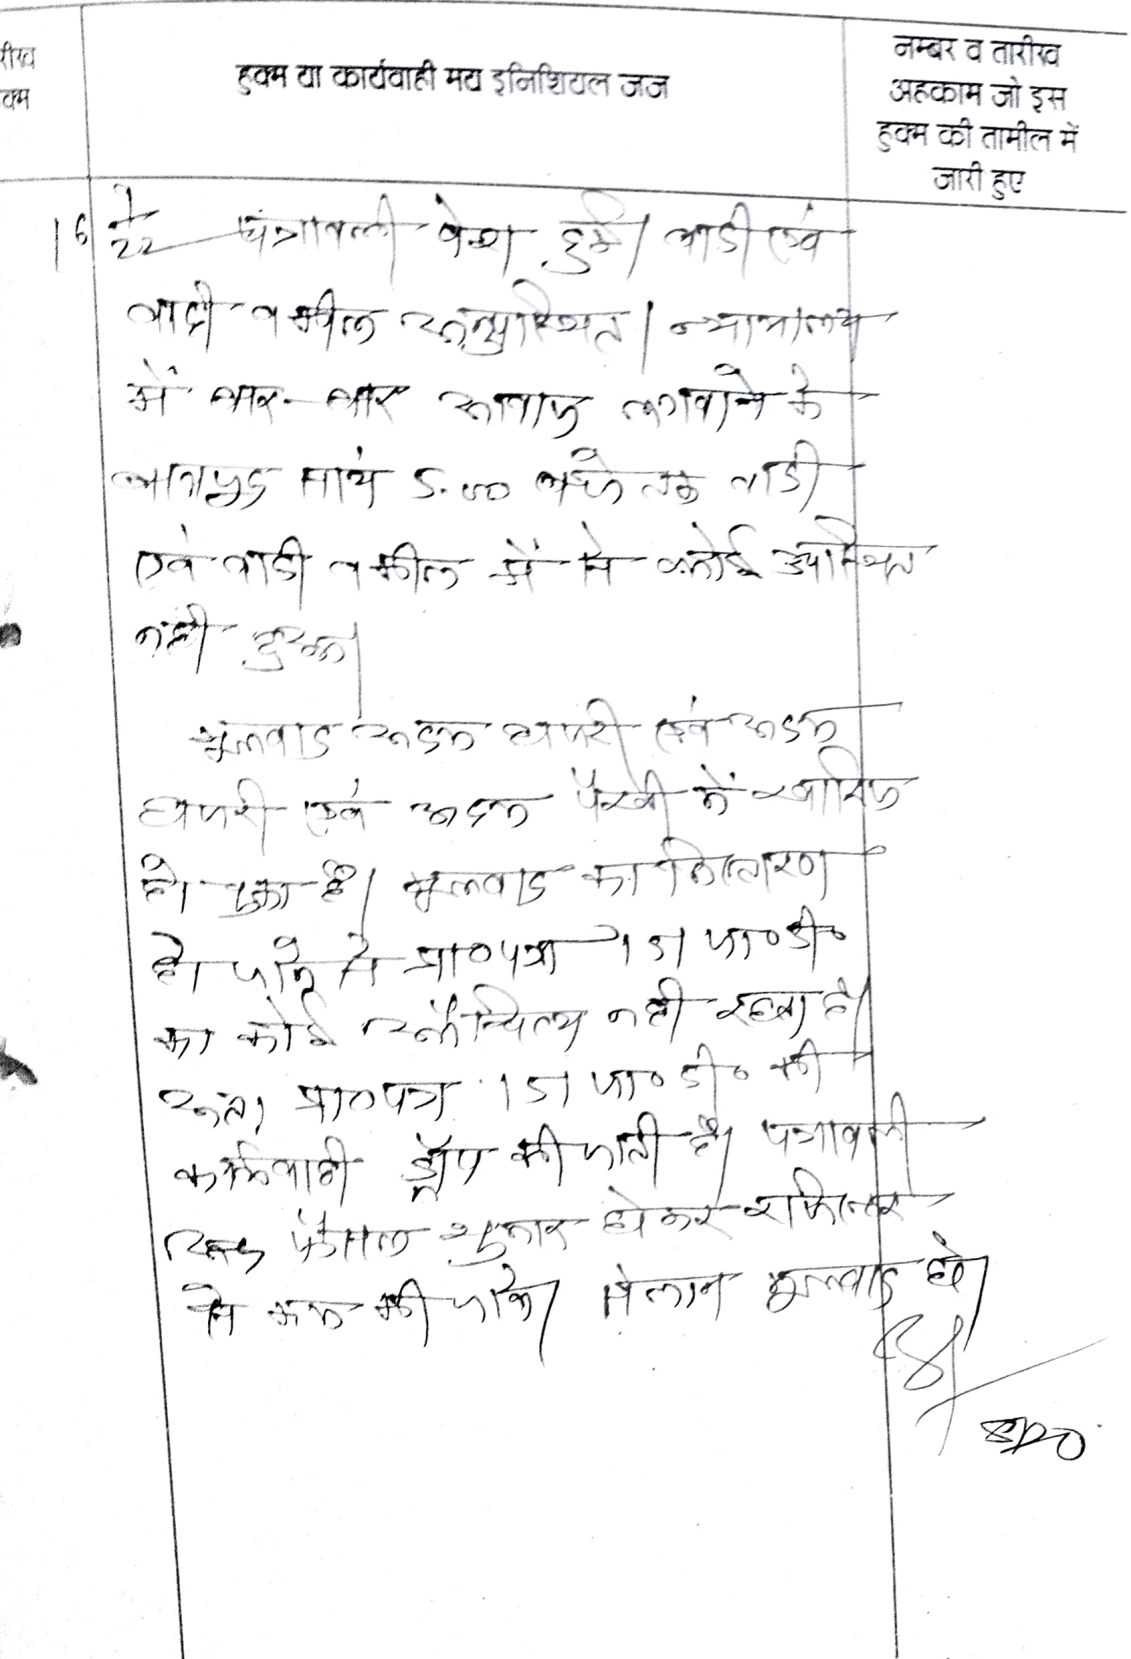 रीख
क्म
हुक्म या कार्यवाही मय इनिशियल जज
नम्बर व तारीख
अहकाम जो इस
हुक्म की तामील में
जारी हुए
16/7/22 पत्रावली पेश हुई। वादी एवं
वादी वकील अनुपस्थित। न्यायालय
में बार-बार आवाज लगवाने के
बावजूद सायं 5.00 बजे तक वादी
एवं वादी वकील में से कोई उपस्थित
नहीं हुआ।
मूलवाद अदम हाजरी एवं अदम
हाजरी एवं अदम पैरवी में खारिज
हो चुका है। मूलवाद का निस्तारण
हो जाने से प्रा०पत्र 151 जा०दी०
का कोई औचित्य नही रहता है।
अतः प्रा०पत्र 151 जा०दी० की
कार्यवाही ड्रॉप की जाती है। पत्रावली
फैसल शुमार होकर रजिस्टर
से कम की जावे। संलग्न मूलवाद हो।
SDO